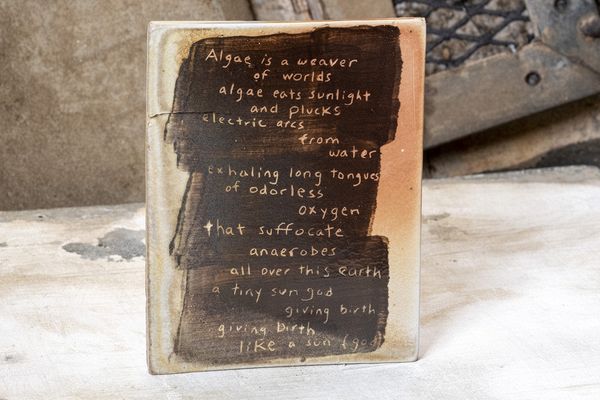 Algae is a weaver
of worlds
algae eats sunlight
and plucks
electric arcs
from
water
exhaling long tongues
of odorless
oxygen
that suffocate
anaerobes
all over this earth
a tiny sun god
giving birth
giving birth
like a sun (god